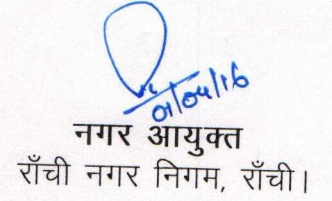 01/04/16
नगर आयुक्त
राँची नगर निगम, राँची।